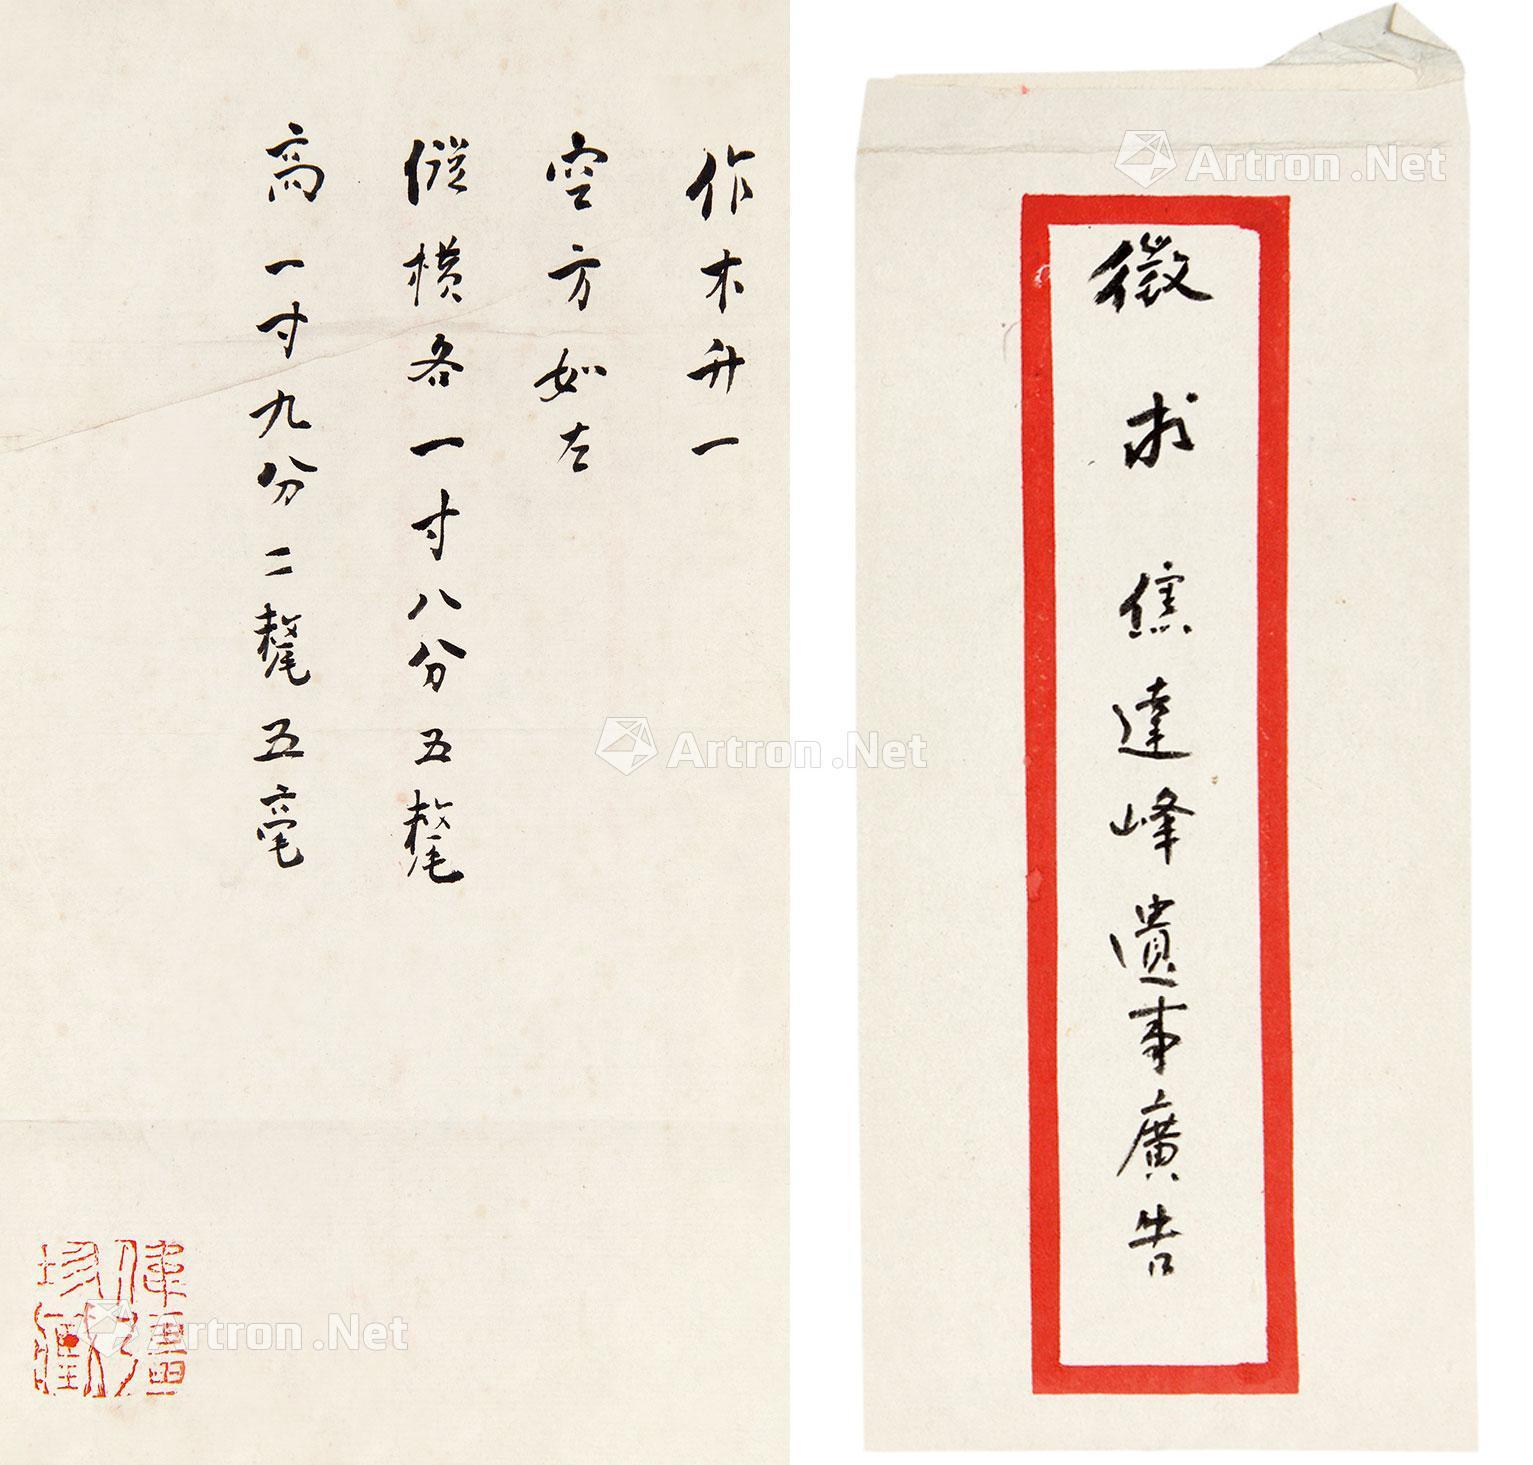 作木升一
空方如左
從橫各一寸八分五氂
高一寸九分二氂五毫
徵求焦達峰遺事廣告
Artron.Net
Artron.Net
Artron.Net